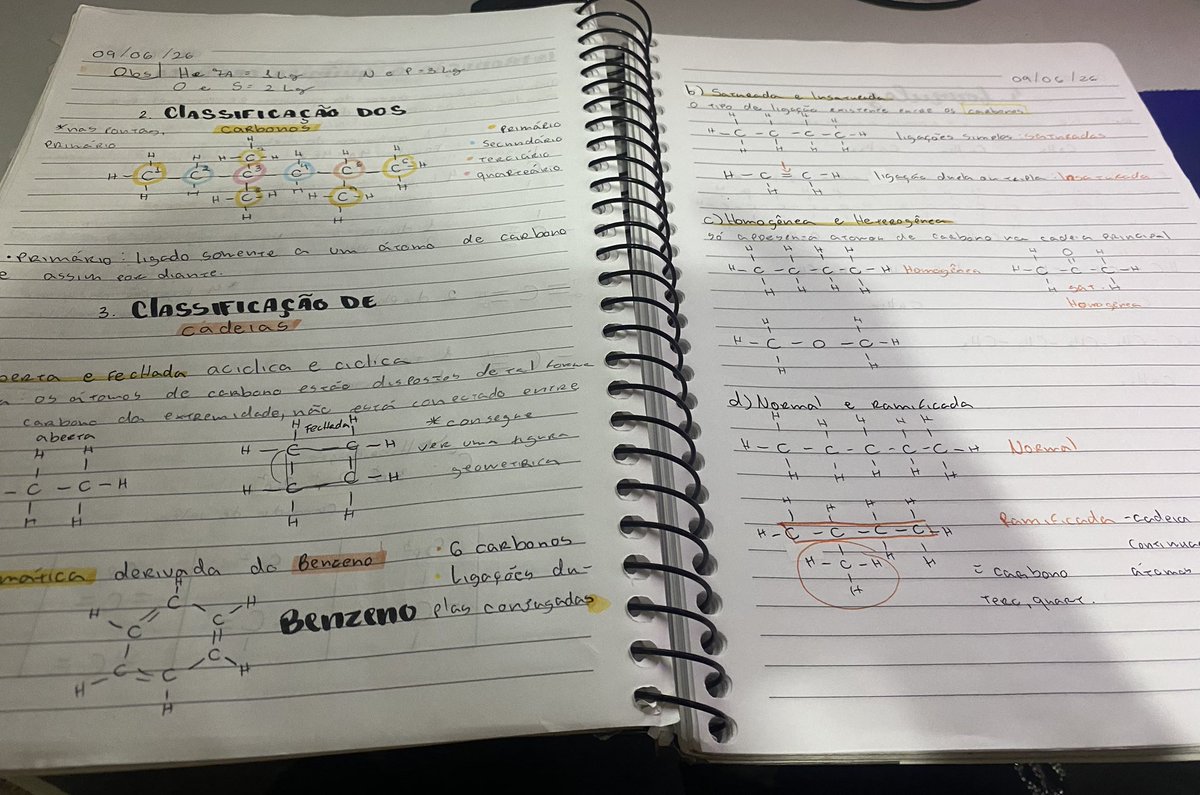 09/06/26
Obs| H e 7A = 1 Lg N e P = 3 Lg
O e S = 2 Lg
2. CLASSIFICAÇÃO DOS
carbonos
*nas pontas,
primário
• Primário
• Secundário
• Terciário
• quartenário
H H H H H H
H - C¹ C² H - C C⁴ C⁵ C⁶ - H
C³
H H H - C - H H - C - H H
H H
• Primário: ligado somente a um átomo de carbono
e assim por diante.
3. CLASSIFICAÇÃO DE
cadeias
berta e fechada aciclica e ciclica
os átomos de carbono estão dispostos de tal forma
carbono da extremidade, não está conectado entre
aberta
Fechada
*consegue
ver uma figura
geometrica
H H
- C - C - H
H H
H H
H - C - C - H
H - C - C - H
H H
mática derivada do Benzeno
• 6 carbonos
• Ligações du-
plas conjugadas
Benzeno
H
H C H
C C
C C
H C H
H
09/06/26
b) Saturada e Insaturada
O tipo de ligação existente entre os carbonos
H H H H
H - C - C - C - C - H ligações simples: saturadas
H - C = C - H ligação dupla ou tripla: Insaturada
H H
c) Homogênea e Heterogênea
só appresenta átomos de carbono na cadeia principal
H H H H
H - C - C - C - C - H Homogênea
H H H H
H O H
H - C - C - C - H
H SAT. H
Homogênea
H H
H - C - O - C - H
H H
d) Normal e Ramificada
H H H H H
H - C - C - C - C - C - H Normal
H H H H H
H H H H
H - C - C - C - C - H
H H H
H - C - H
H
Ramificada - cadeia
continua
= carbono átomos
terc, quart.